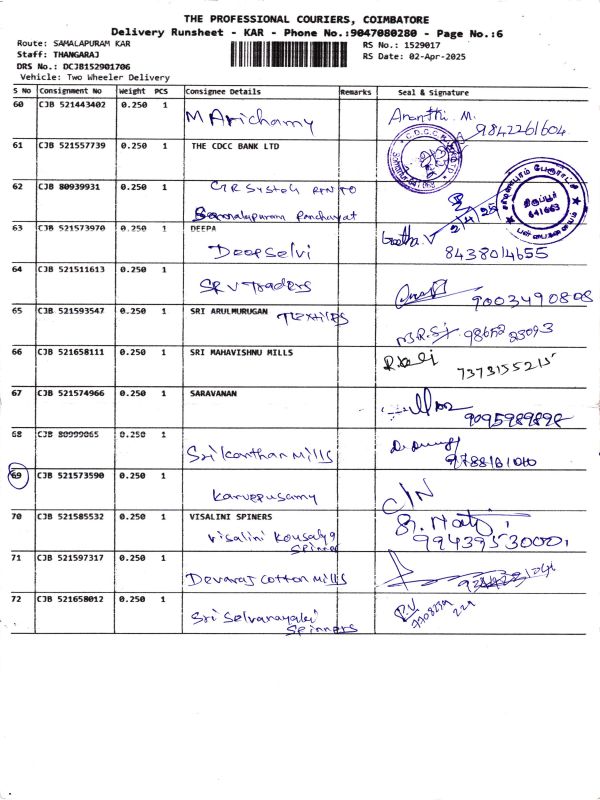 THE PROFESSIONAL COURIERS, COIMBATORE
Delivery Runsheet - KAR - Phone No.:9047080280 - Page No.:6
Route: SAMALAPURAM KAR
RS No.: 1529017
Staff: THANGARAJ
RS Date: 02-Apr-2025
DRS No.: DCJB152901706
Vehicle: Two Wheeler Delivery
S No Consignment No Weight PCS Consignee Details Remarks Seal & Signature
60 CJB 521443402 0.250 1 M Arichamy Ananthi. M.
9842261604
61 CJB 521557739 0.250 1 THE CDCC BANK LTD
62 CJB 80939931 0.250 1
Panchayat
சாமளாபுரம் பேரூராட்சி
திருப்பூர்
641663
2/4/25
63 CJB 521573970 0.250 1 DEEPA
Deepselvi Geetha. V
8438014655
64 CJB 521511613 0.250 1 SRV Traders 9003490808
65 CJB 521593547 0.250 1 SRI ARULMURUGAN TEXTILES
66 CJB 521658111 0.250 1 SRI MAHAVISHNU MILLS
7373155215
67 CJB 521574966 0.250 1 SARAVANAN
9095989898
68 CJB 80999065 0.250 1 Sri Kanthan Mills
69 CJB 521573590 0.250 1 Karuppusamy C/N
70 CJB 521585532 0.250 1 VISALINI SPINERS
Visalini Kousalya
Spinners
9943953000
71 CJB 521597317 0.250 1 Devaraj Cotton Mills
72 CJB 521658012 0.250 1 Sri Selvanayaki
Spinners
R.V
7708229
229